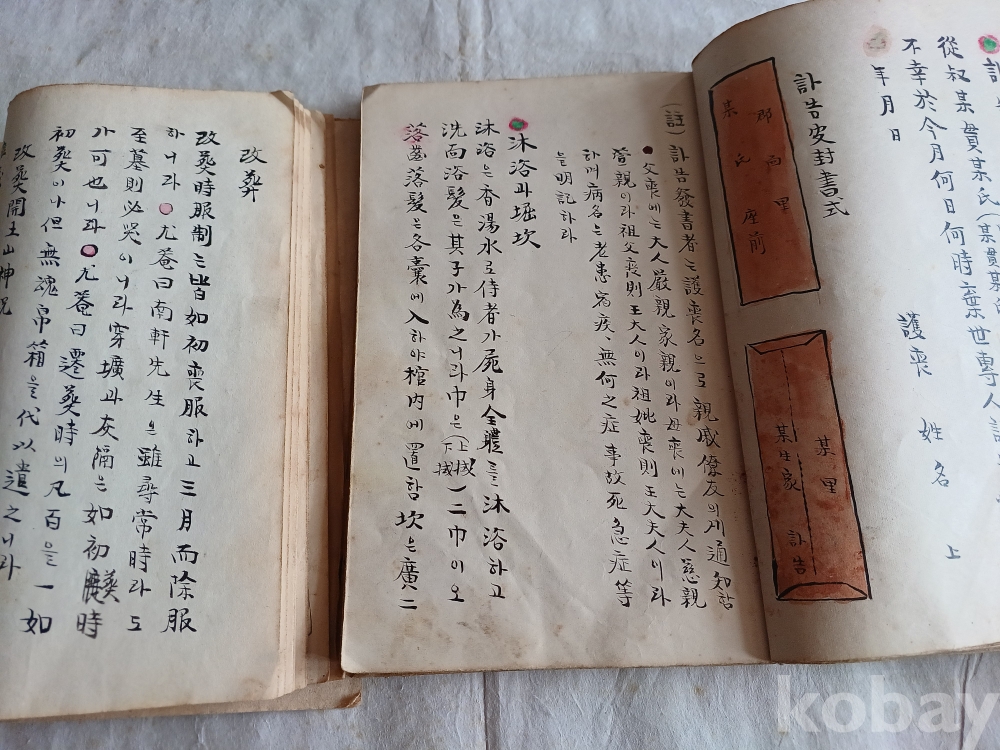 訃告皮封書式
某 氏 座前
郡 面 里
某里
某生家 訃告
從叔某貫某氏(某貫某
不幸於今月何日何時棄世專人訃
年 月 日
護喪 姓名 上
(註) 訃告發書者는護喪名으로親戚僚友의게通知함
父喪에는大人嚴親家親이라母喪에는大夫人慈親
萱親이라祖父喪則王大人이라祖妣喪則王大夫人이라
하며病名은老患宿疾、無何之症事故死急症等
을明記하라
沐浴과堀坎
沐浴은香湯水로侍者가屍身全體를沐浴하고
洗面浴髮은其子가為之니라巾은(上緎下緎)二巾이오
落齒落髮은各囊에入하야棺內에置함坎은廣二
改葬
改葬時服制는皆如初喪服하고三月而除服
하니라 尤菴曰南軒先生은雖尋常時라도
至墓則必哭이니라穿壙과灰隔은如初葬時
가可也니라 尤菴曰遷葬時의凡百을一如
初葬이나但無魂帛箱을代以遺之니라
改葬開土山神祝
kobay